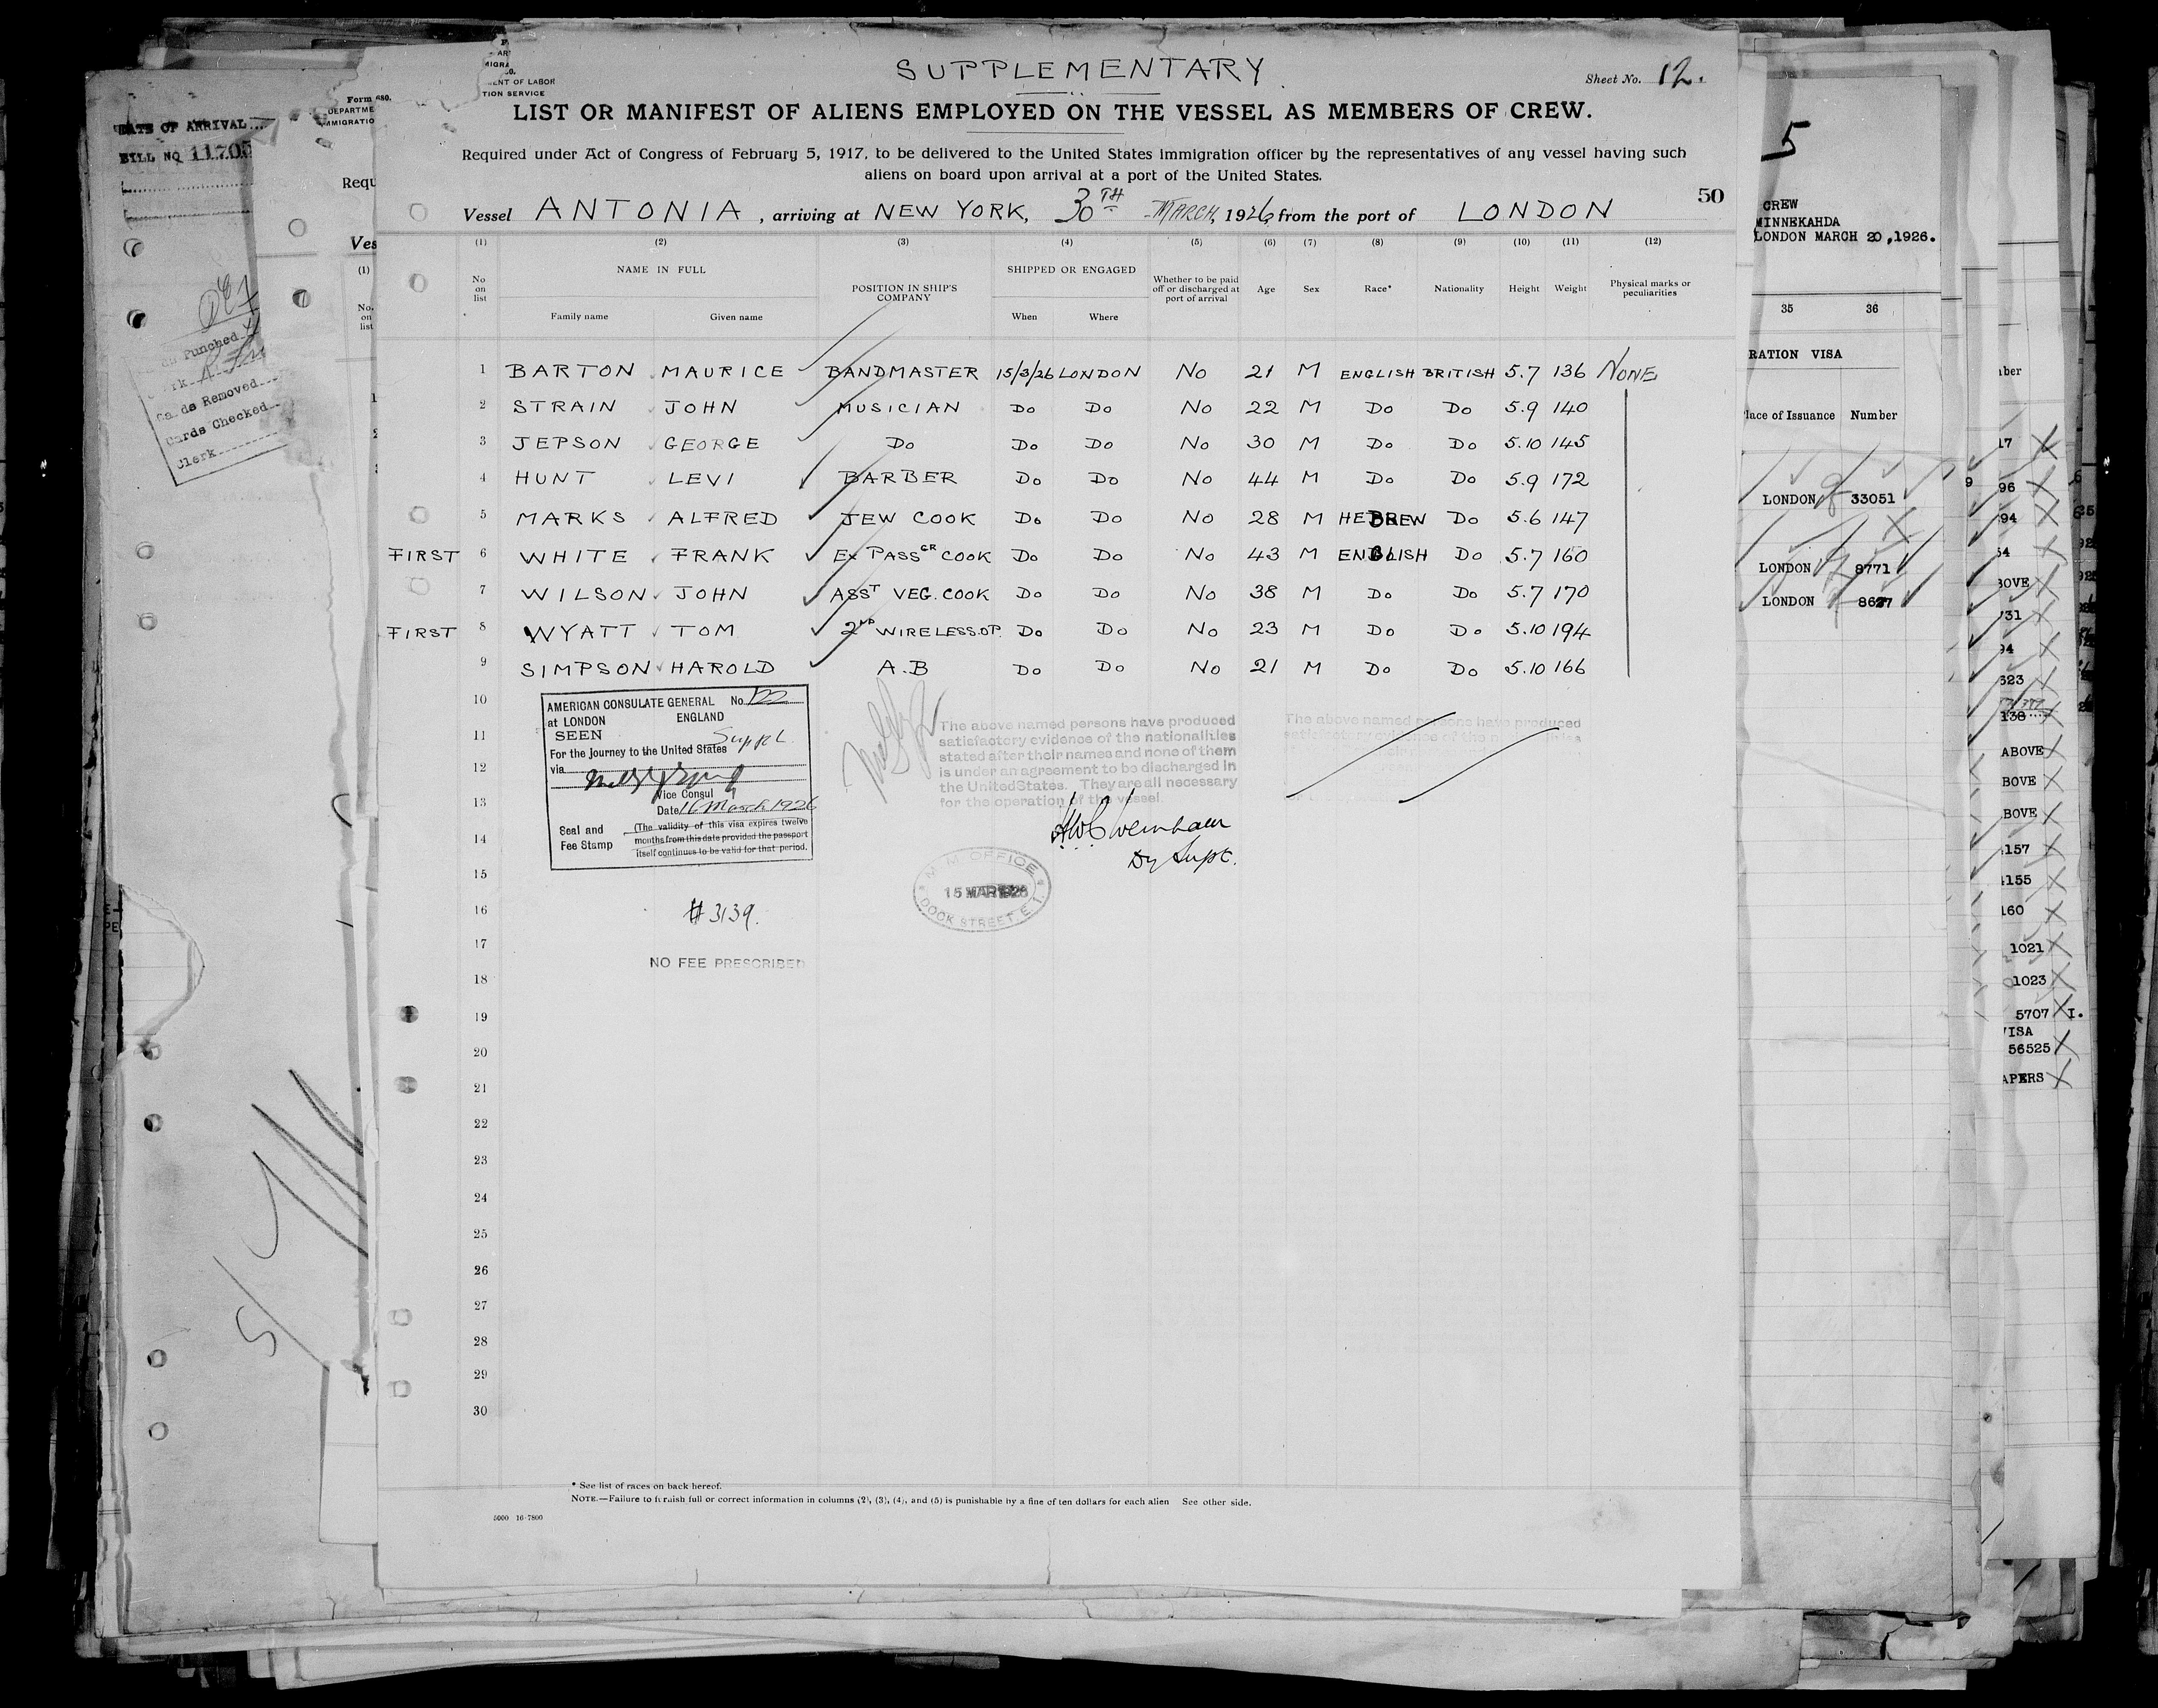 SUPPLEMENTARY
Sheet No. 12.
LIST OR MANIFEST OF ALIENS EMPLOYED ON THE VESSEL AS MEMBERS OF CREW.
Required under Act of Congress of February 5, 1917, to be delivered to the United States immigration officer by the representatives of any vessel having such
aliens on board upon arrival at a port of the United States.
50
Vessel ANTONIA, arriving at NEW YORK, 30TH MARCH, 1926, from the port of LONDON
(1) (2) (3) (4) (5) (6) (7) (8) (9) (10) (11) (12)
No on list NAME IN FULL Family name Given name POSITION IN SHIP'S COMPANY SHIPPED OR ENGAGED When Where Whether to be paid off or discharged at port of arrival Age Sex Race* Nationality Height Weight Physical marks or peculiarities
1 BARTON MAURICE BANDMASTER 15/3/26 LONDON No 21 M ENGLISH BRITISH 5.7 136 NONE
2 STRAIN JOHN MUSICIAN Do Do No 22 M Do Do 5.9 140
3 JEPSON GEORGE Do Do Do No 30 M Do Do 5.10 145
4 HUNT LEVI BARBER Do Do No 44 M Do Do 5.9 172
5 MARKS ALFRED JEW COOK Do Do No 28 M HEBREW Do 5.6 147
FIRST 6 WHITE FRANK Ex PASSGR COOK Do Do No 43 M ENGLISH Do 5.7 160
7 WILSON JOHN ASST VEG. COOK Do Do No 38 M Do Do 5.7 170
FIRST 8 WYATT TOM 2ND WIRELESS.OP. Do Do No 23 M Do Do 5.10 194
9 SIMPSON HAROLD A.B Do Do No 21 M Do Do 5.10 166
10
11
12
13
14
15
16
17
18
19
20
21
22
23
24
25
26
27
28
29
30
AMERICAN CONSULATE GENERAL No.
at LONDON ENGLAND
SEEN Suppl.
For the journey to the United States
via
Vice Consul
Date 16 March 1926
Seal and Fee Stamp
(The validity of this visa expires twelve
months from this date provided the passport
itself continues to be valid for that period.
The above named persons have produced
satisfactory evidence of the nationalities
stated after their names and none of them
is under an agreement to be discharged in
the United States. They are all necessary
for the operation of the vessel.
The above named persons have produced
Dy Supt.
M.M. OFFICE
15 MAR 1926
DOCK STREET. E.1.
# 3139.
NO FEE PRESCRIBED
* See list of races on back hereof.
NOTE.—Failure to furnish full or correct information in columns (2), (3), (4), and (5) is punishable by a fine of ten dollars for each alien See other side.
5000 16-7800
DATE OF ARRIVAL
BILL NO 11705
Punched
Cards Removed
Cards Checked
Clerk
Form 680.
5
CREW
MINNEKAHDA
LONDON MARCH 20,1926.
35 36
RATION VISA
Place of Issuance Number
LONDON 33051
LONDON 8771
LONDON 8627
17
96
94
54
BOVE
731
94
523
138
ABOVE
BOVE
BOVE
157
155
160
1021
1023
5707
VISA
56525
APERS